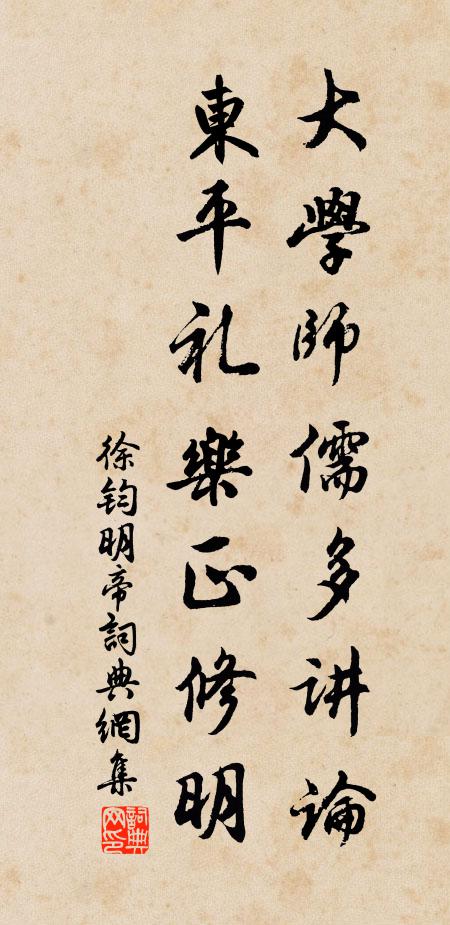 大學師儒多讲論
東平礼樂正修明
徐鈞明帝詞典網集
詞典網印